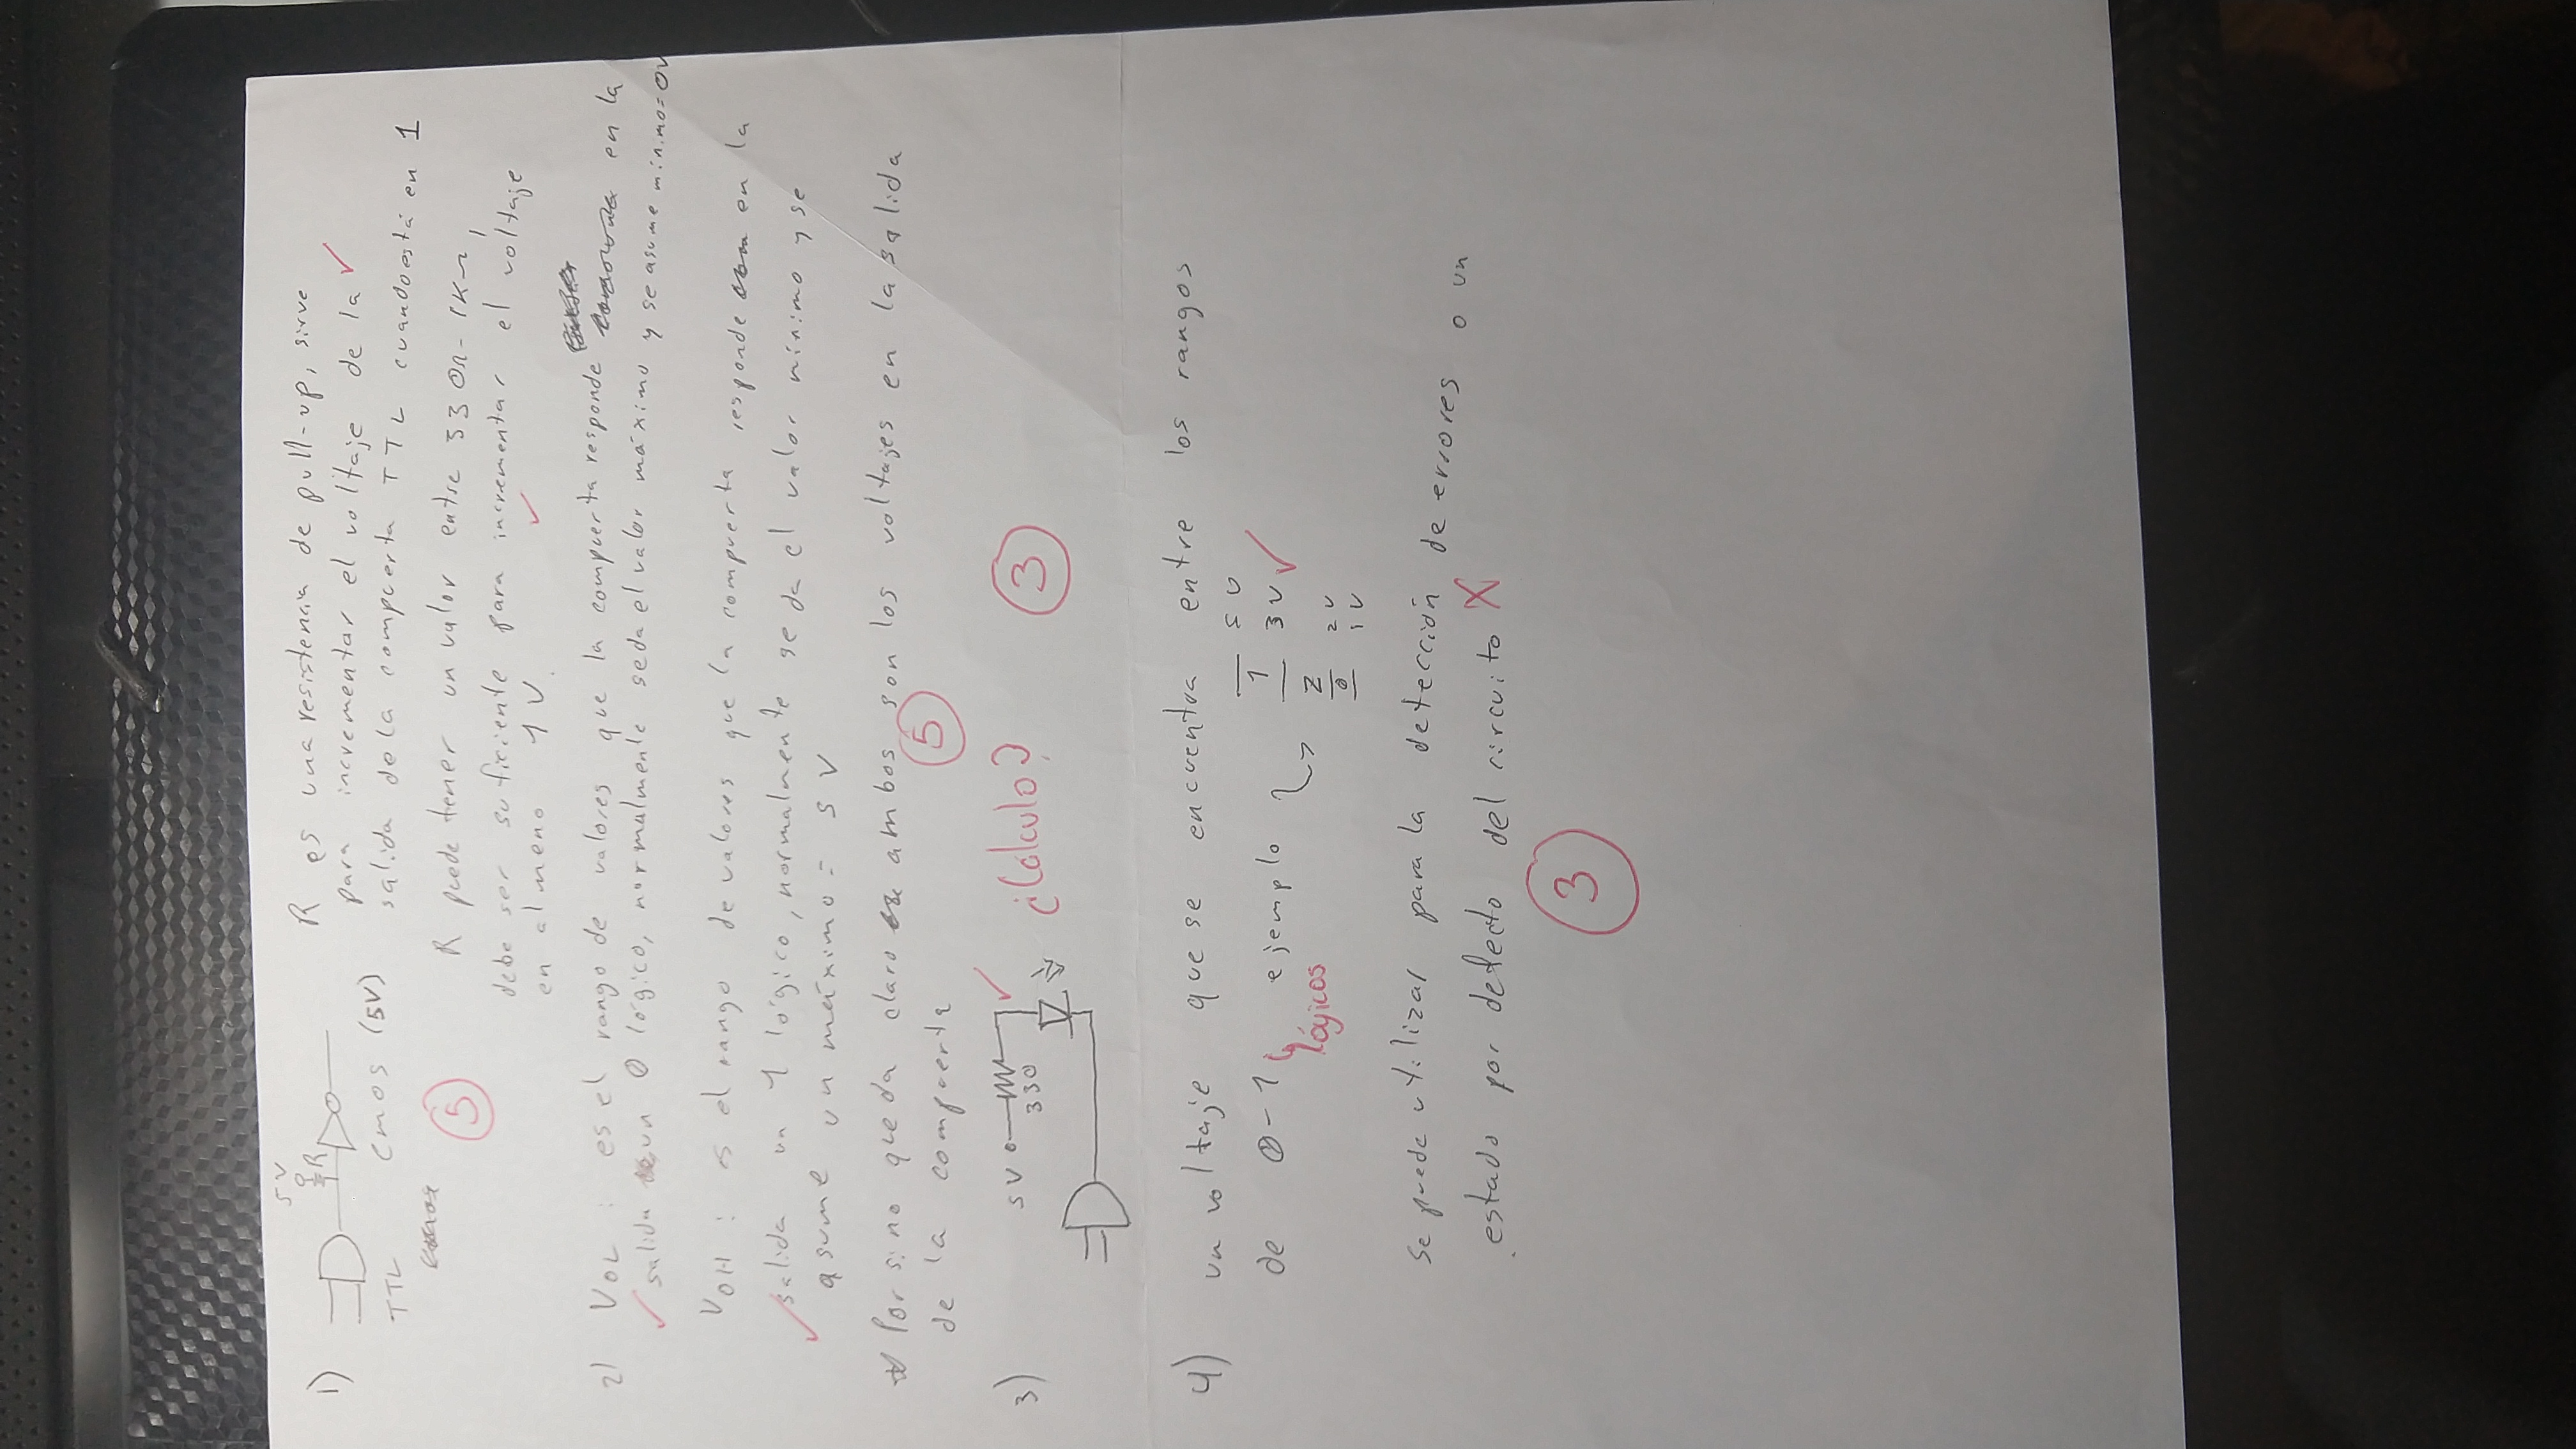 1)
5V
R
TTL
CMOS (5V)
5
R es una resistencia de pull-up, sirve
para incrementar el voltaje de la
salida de la compuerta TTL cuando está en 1
R puede tener un valor entre 330Ω-1KΩ,
debe ser suficiente para incrementar el voltaje
en al meno 1V.
2) VOL : es el rango de valores que la compuerta responde en la
salida un 0 lógico, normalmente se da el valor máximo y se asume mínimo=0V
VOH : es el rango de valores que la compuerta responde en la
salida un 1 lógico, normalmente se da el valor mínimo y se
asume un máximo = 5V
* Por si no queda claro ambos son los voltajes en la salida
de la compuerta
5
3)
5V
330
¿Cálculo?
3
4) un voltaje que se encuentra entre los rangos
de 0-1 ejemplo
lógicos
5V
1
3V
Z
2V
0
1V
se puede utilizar para la detección de errores o un
estado por defecto del circuito X
3